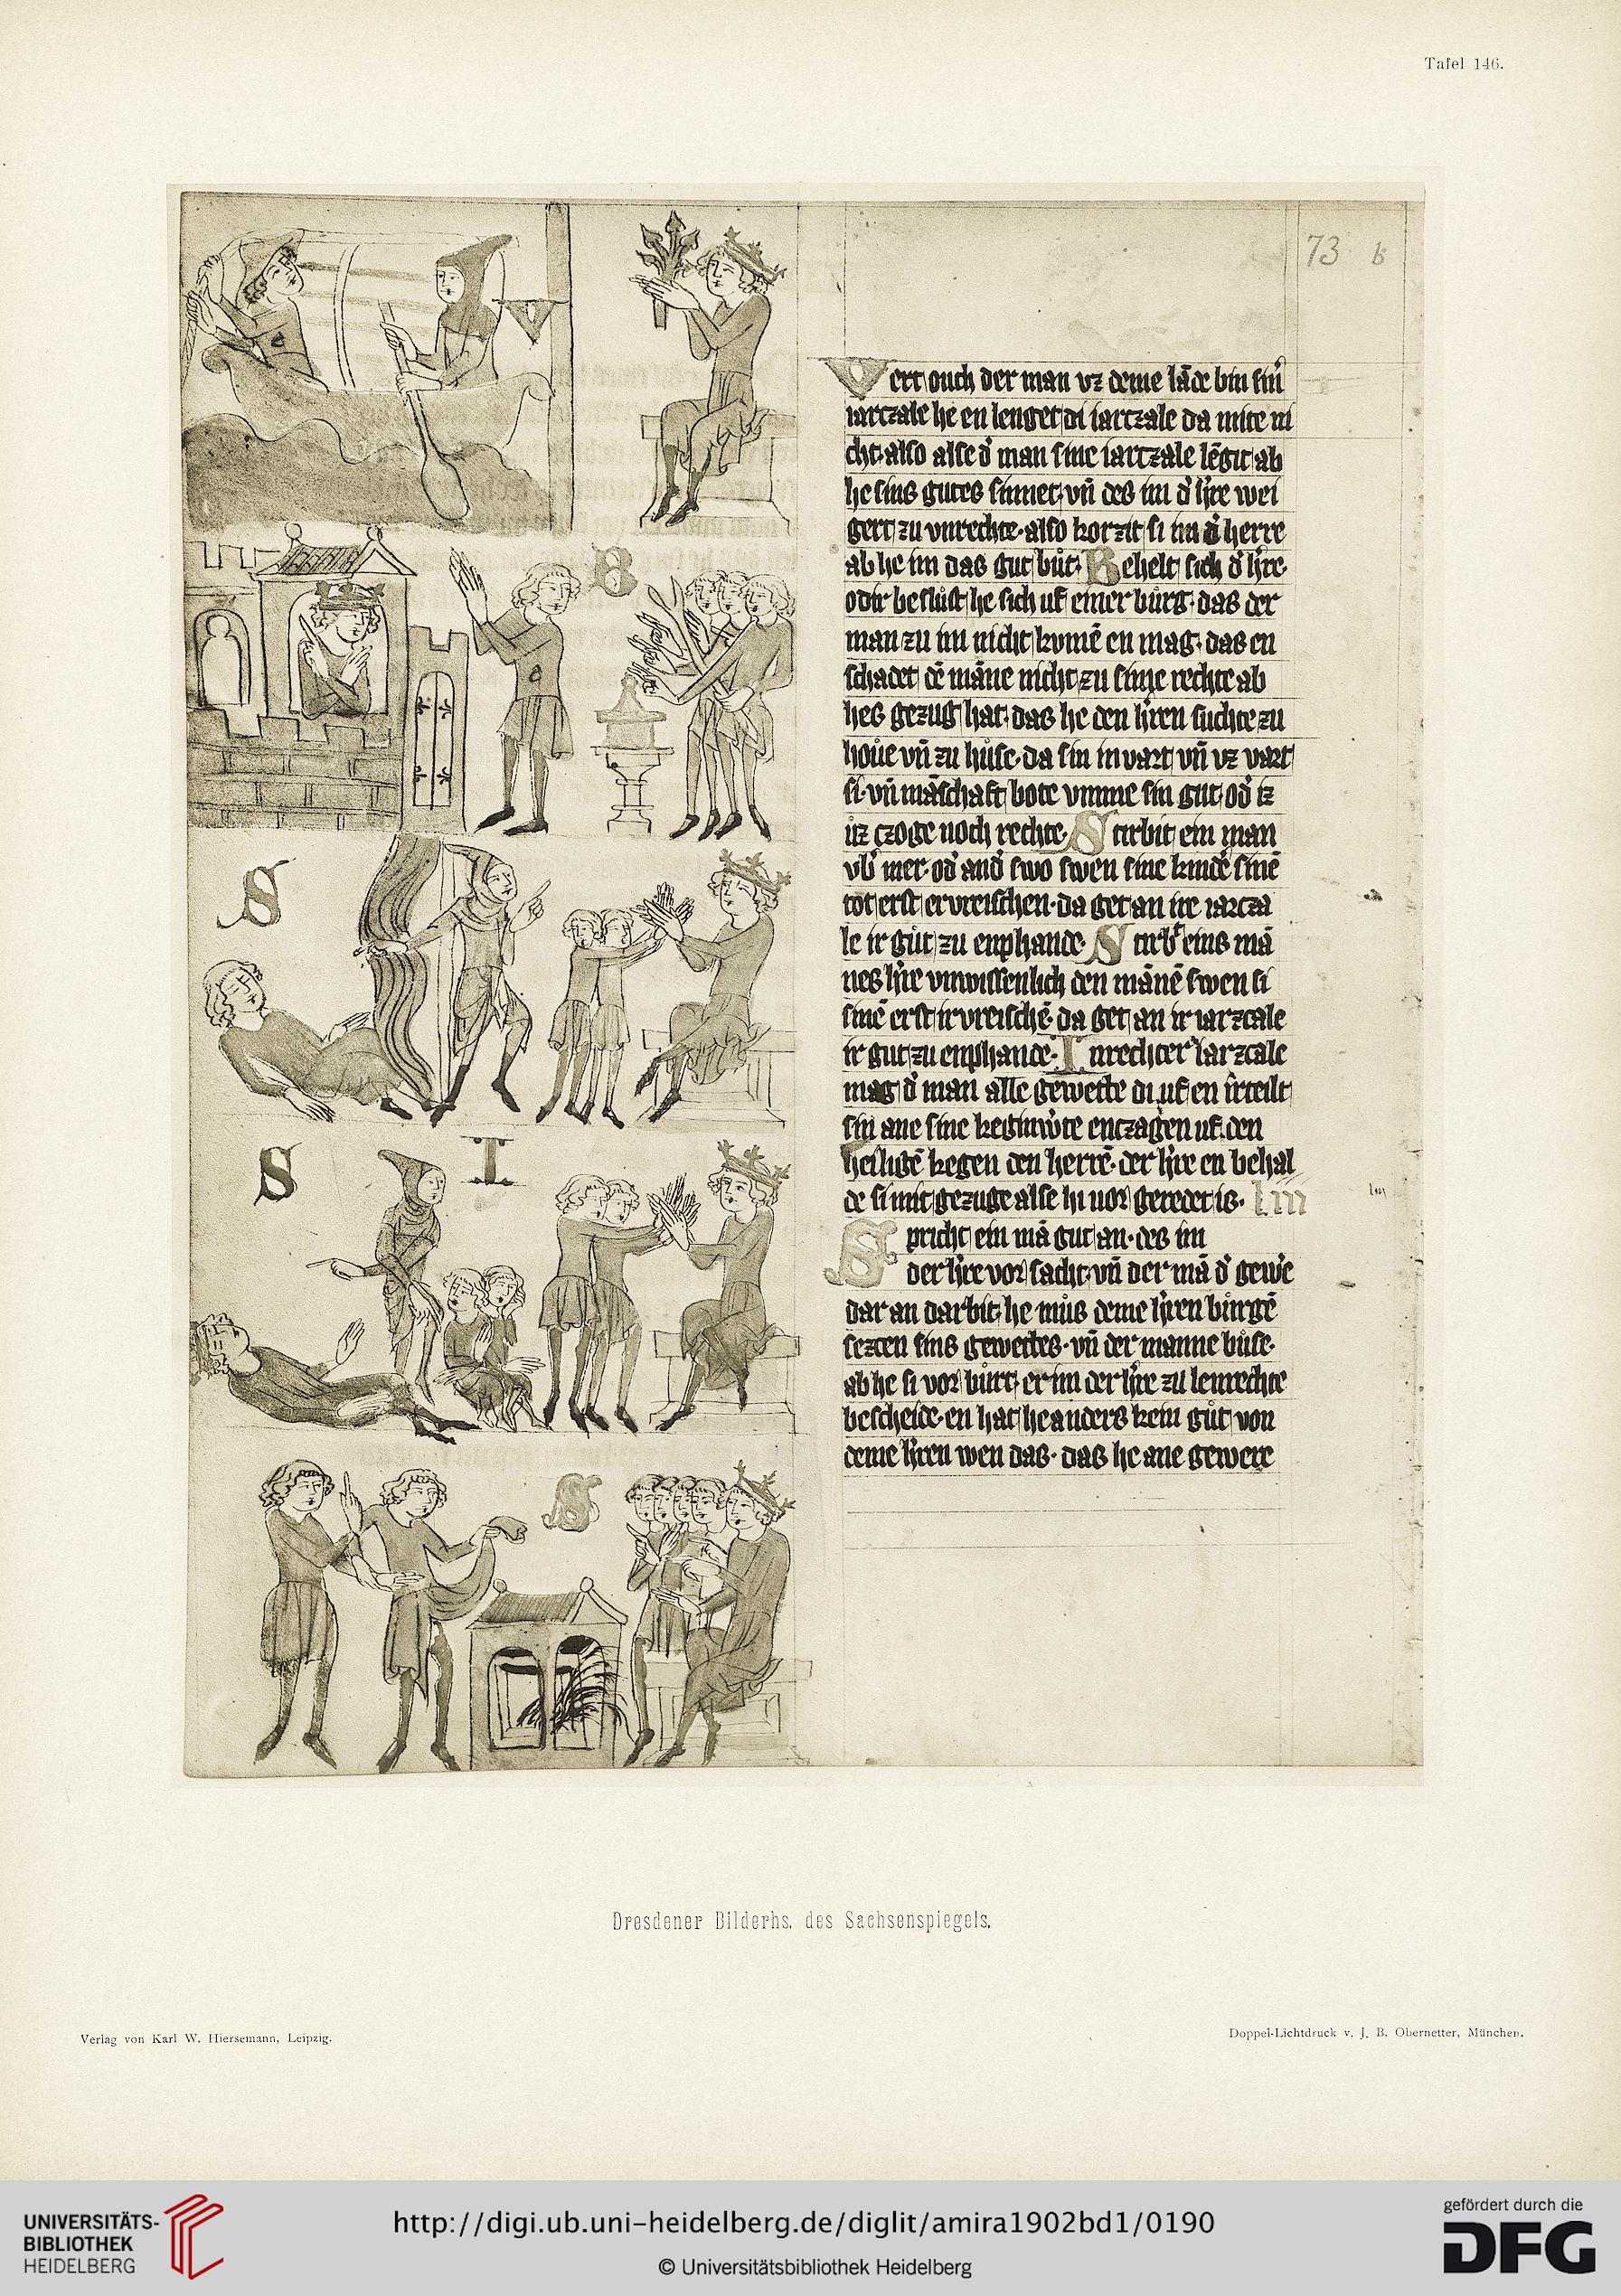 Tafel 146.
73 b
Vert ouch der man vz deme lāde bin sinˀ
iarczale he en lenget di iarczale da mite ni
cht. also alse dˀ man sine iarczale lēgit ab
he sins gutes sinnet. vn̄ des im dˀ hˀre wei
gert zu vnrechte. also korzit si im dˀ herre
ab he im das gut but. Behelt sich dˀ hˀre.
odir beslůst he sich uf einer burg. das der
man zu im nicht komē en mag. das en
schadet dē māne nicht zu sime rechte ab
hes gezug hat. das he den hˀren suchte zu
houe vn̄ zu huse. da sin invart vn̄ vz vart
si. vn̄ māschaft bote vmme sin gut. odˀ iz
uz czoge noch rechte. Stirbit ein man
vbˀ mer. odˀ andˀ swo swen sine kindˀ sinē
tot erst ervreischen. da get an ire iarcza
le ir gut zu enphande. Stirbˀt eins mā
nes hˀre vnwissenlich den mānē swen si
sinē erst irvreischē. da get an ir iarzcale
ir gut zu enphande. In rechter iarzcale
mag dˀ man alle gewette di uf en irteilt
sin ane sine keginwˀte enczagen uf den
heiligē kegen den herrē. der hˀre en behal
de si mit gezuge alse hi uor geredet is. liii
Spricht ein mā gut an. des im
der hˀre vor sacht. vn̄ der mā dˀ gewˀe
dar an darbit. he mus deme hˀren burgē
sezcen sins gewettes. vn̄ der manne buse.
ab he si vor burt. er im der hˀre zu lenrechte
bescheide. en hat he anders kein gut von
deme hˀren wen das. das he ane gewere
B
S
S
I
S
Dresdener Bilderhs. des Sachsenspiegels.
Verlag von Karl W. Hiersemann, Leipzig.
Doppel-Lichtdruck v. J. B. Obernetter, München.
UNIVERSITÄTS-
BIBLIOTHEK
HEIDELBERG
http://digi.ub.uni-heidelberg.de/diglit/amira1902bd1/0190
© Universitätsbibliothek Heidelberg
gefördert durch die
DFG